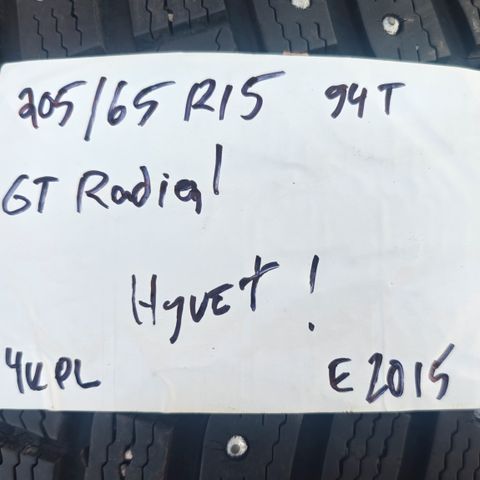 205/65 R15 94T
GT Radial
Hyvet!
4KPL E2015